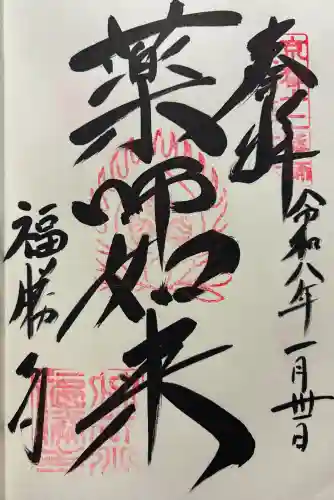 奉拝
令和八年一月卅一日
薬师如来
福勝寺